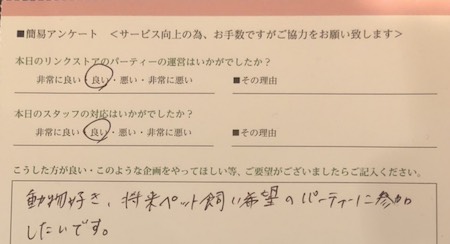 ■簡易アンケート ＜サービス向上の為、お手数ですがご協力をお願い致します＞
本日のリンクストアのパーティーの運営はいかがでしたか？
非常に良い・良い・悪い・非常に悪い ■その理由
本日のスタッフの対応はいかがでしたか？
非常に良い・良い・悪い・非常に悪い ■その理由
こうした方が良い・このような企画をやってほしい等、ご要望がございましたらご記入ください。
動物好き、将来ペット飼い希望のパーティーに参加
したいです。